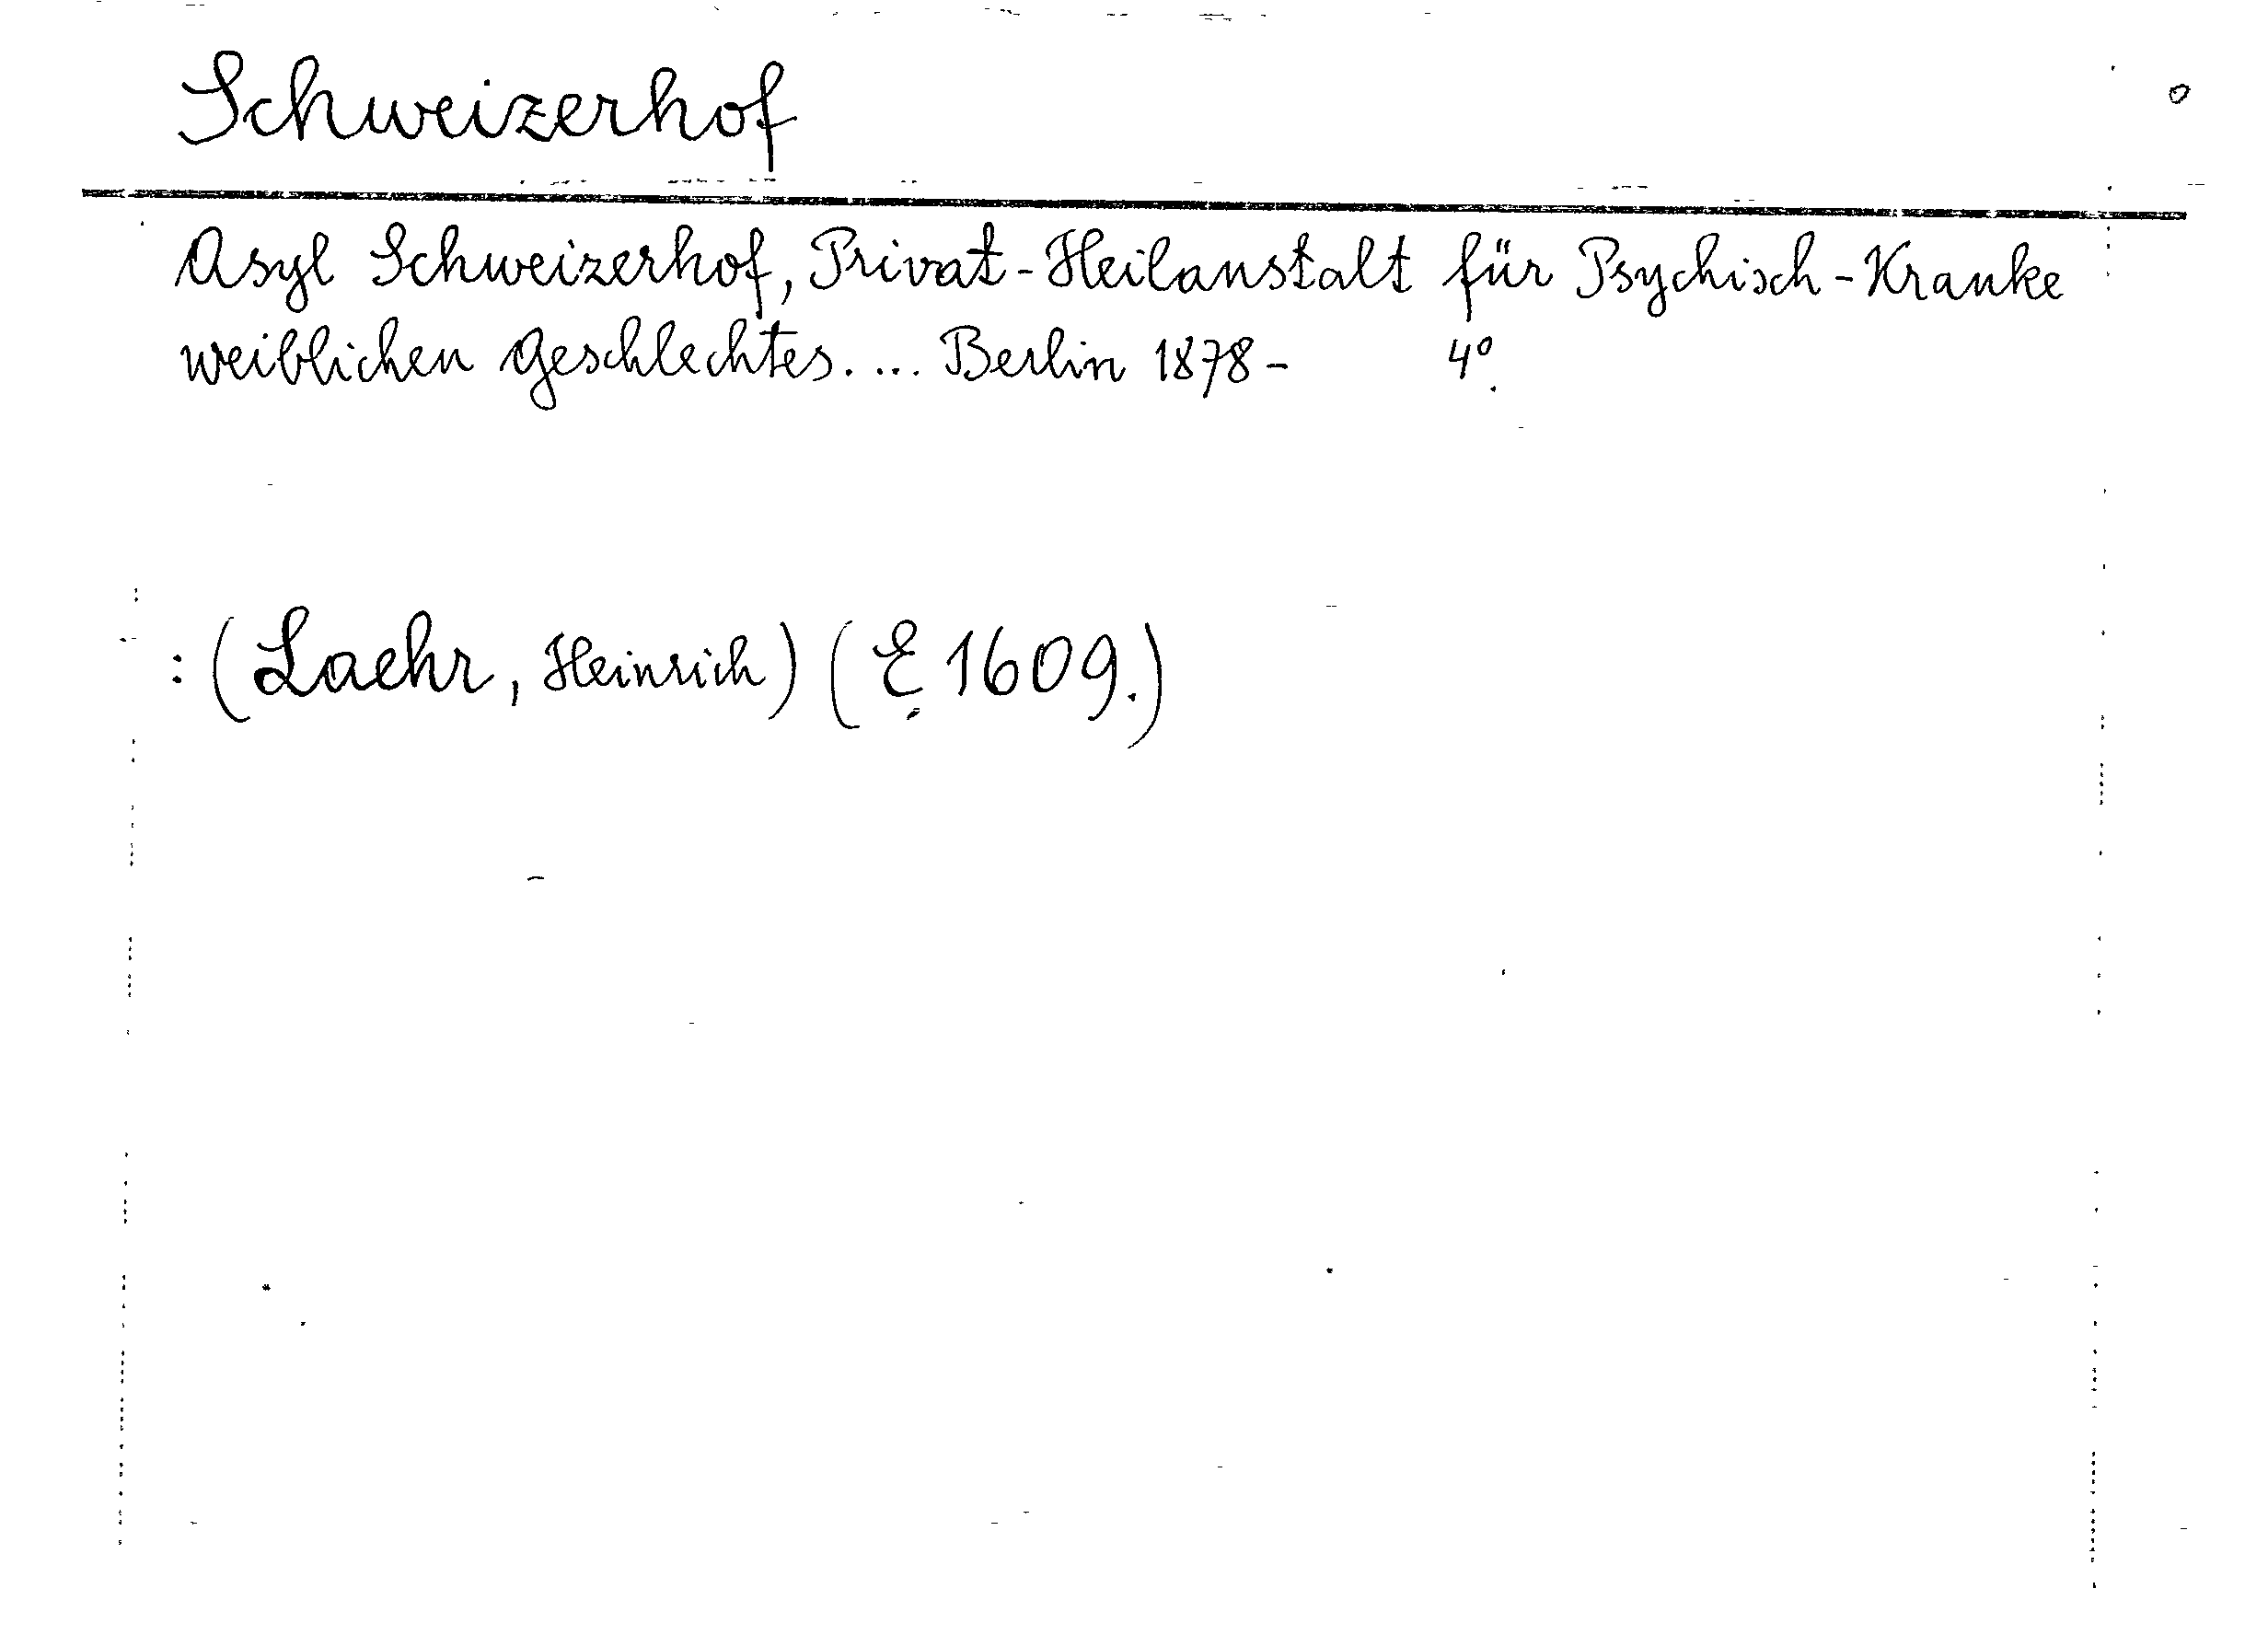 Schweizerhof
Asyl Schweizerhof, Privat-Heilanstalt für Psychisch-Kranke
weiblichen Geschlechtes. ... Berlin 1878- 4°.
: (Laehr, Heinrich) (E 1609.)